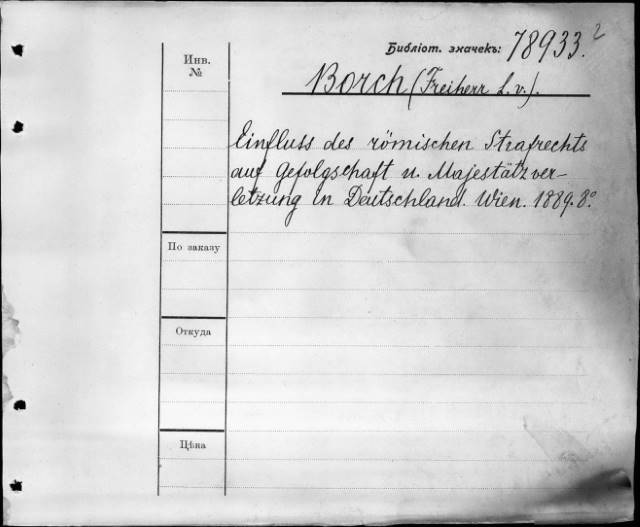 Библіот. значекъ: 78933.2
Инв.
№
Borch (Freiherr L. v.).
Einfluss des römischen Strafrechts
auf Gefolgschaft u. Majestätzver-
letzung in Deutschland. Wien. 1889. 8°.
По заказу
Откуда
Цѣна